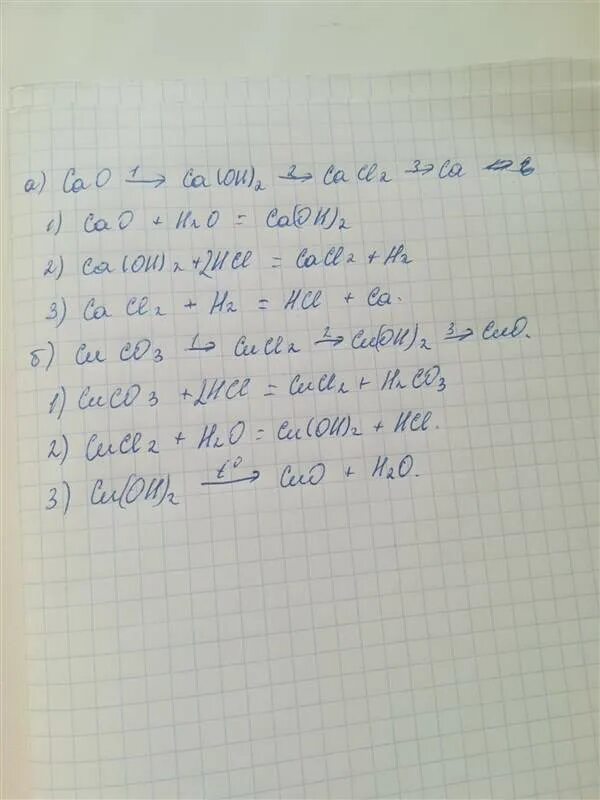 а) CaO 1→ Ca(OH)₂ 2→ CaCl₂ 3→ Ca
1) CaO + H₂O = Ca(OH)₂
2) Ca(OH)₂ + 2HCl = CaCl₂ + H₂
3) CaCl₂ + H₂ = HCl + Ca.
б) CuCO₃ 1→ CuCl₂ 2→ Cu(OH)₂ 3→ CuO.
1) CuCO₃ + 2HCl = CuCl₂ + H₂CO₃
2) CuCl₂ + H₂O = Cu(OH)₂ + HCl.
3) Cu(OH)₂ t⁰→ CuO + H₂O.